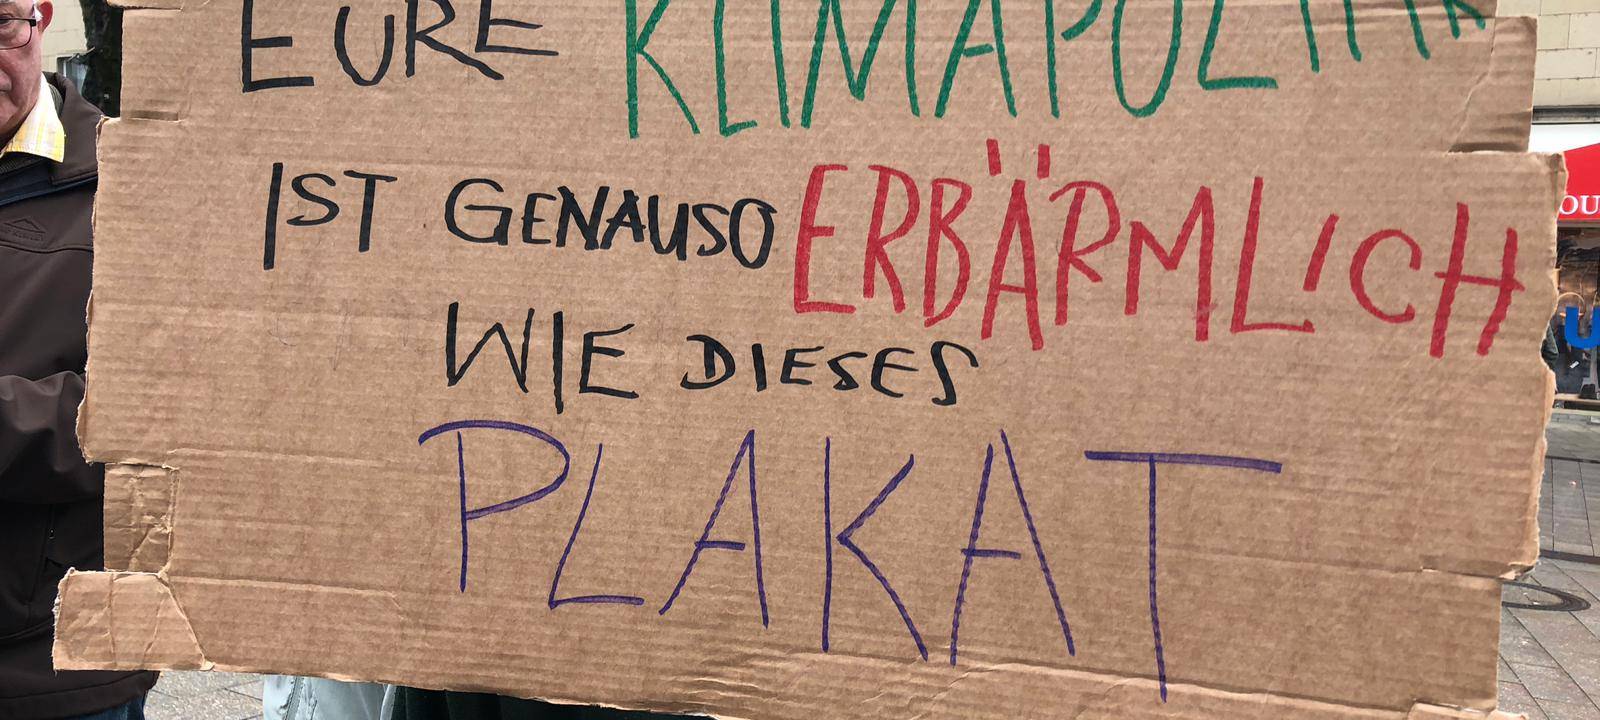 EURE KLIMAPOLITIK
IST GENAUSO ERBÄRMLICH
WIE DIESES
PLAKAT
OU
U